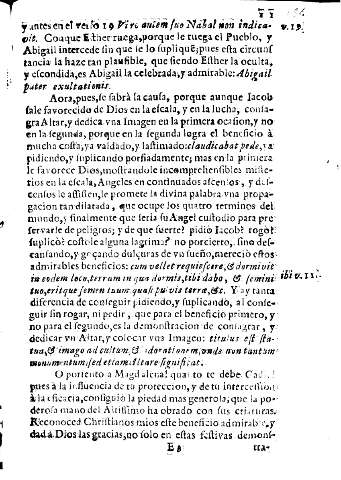 11
y antes en el verso 19 Viro autem suo Nabal non indica- v. 19.
vit. Con que Esther ruega, porque le ruega el Pueblo, y
Abigail intercede sin que le lo suplique; pues esta circunſ
tancia la haze tan plauſible, que siendo Esther la oculta,
y eſcondida, es Abigail la celebrada, y admirable: Abigail
pater exultationis.
Aora, pues, ſe ſabrà la cauſa, porque aunque Jacob
ſale favorecido de Dios en la eſcala, y en la lucha, conſa-
gra Altar, y dedica vna Imagen en la primera ocaſion, y no
en la ſegunda, porque en la ſegunda logra el beneficio à
mucha coſta, ya valdado, y laſtimado: claudicabat pede, ya
pidiendo, y ſuplicando porfiadamente; mas en la primera
le favorece Dios, moſtrandole incomprehenſibles miſte-
rios en la eſcala, Angeles en continuados aſcenſos, y deſ-
cenſos le aſsiſten, le promete la divina palabra vna propa-
gacion tan dilatada, que ocupe los quatro terminos del
mundo, y finalmente que ſeria ſu Angel cuſtodio para pre-
ſervarle de peligros; y de que ſuerte? pidiò Jacob? rogò?
ſuplicò? coſtole alguna lagrima? no por cierto, ſino deſ-
canſando, y goçando dulçuras de vn ſueño, mereciò eſtos
admirables beneficios: cum vellet requieſcere, & dormivit
in eodem loco, terram in qua dormis, tibi dabo, & ſemini ibi v. 11.
tuo, eritque ſemen tuum quaſi pulvis terræ, &c. Y ay tanta
diferencia de conſeguir pidiendo, y ſuplicando, al conſe-
guir ſin rogar, ni pedir, que para el beneficio primero, y
no para el ſegundo, es la demonſtracion de conſagrar, y
dedicar vn Altar, y colocar vna Imagen: titulus eſt ſta-
tua, & imago ad cultum, & adorationem, unde non tantum
monumentum, ſed etiam Altare ſignificat.
O portento a Magdalena! què te debe
pues à la influencia de tu proteccion, y de tu interceſsion
à la eficacia, conſiguiò la piedad mas generoſa, que la po-
deroſa mano del Altiſsimo ha obrado con ſus criaturas.
Reconoced Chriſtianos mios eſte beneficio admirable, y
dad à Dios las gracias, no ſolo en eſtas feſtivas demonſ-
tra-